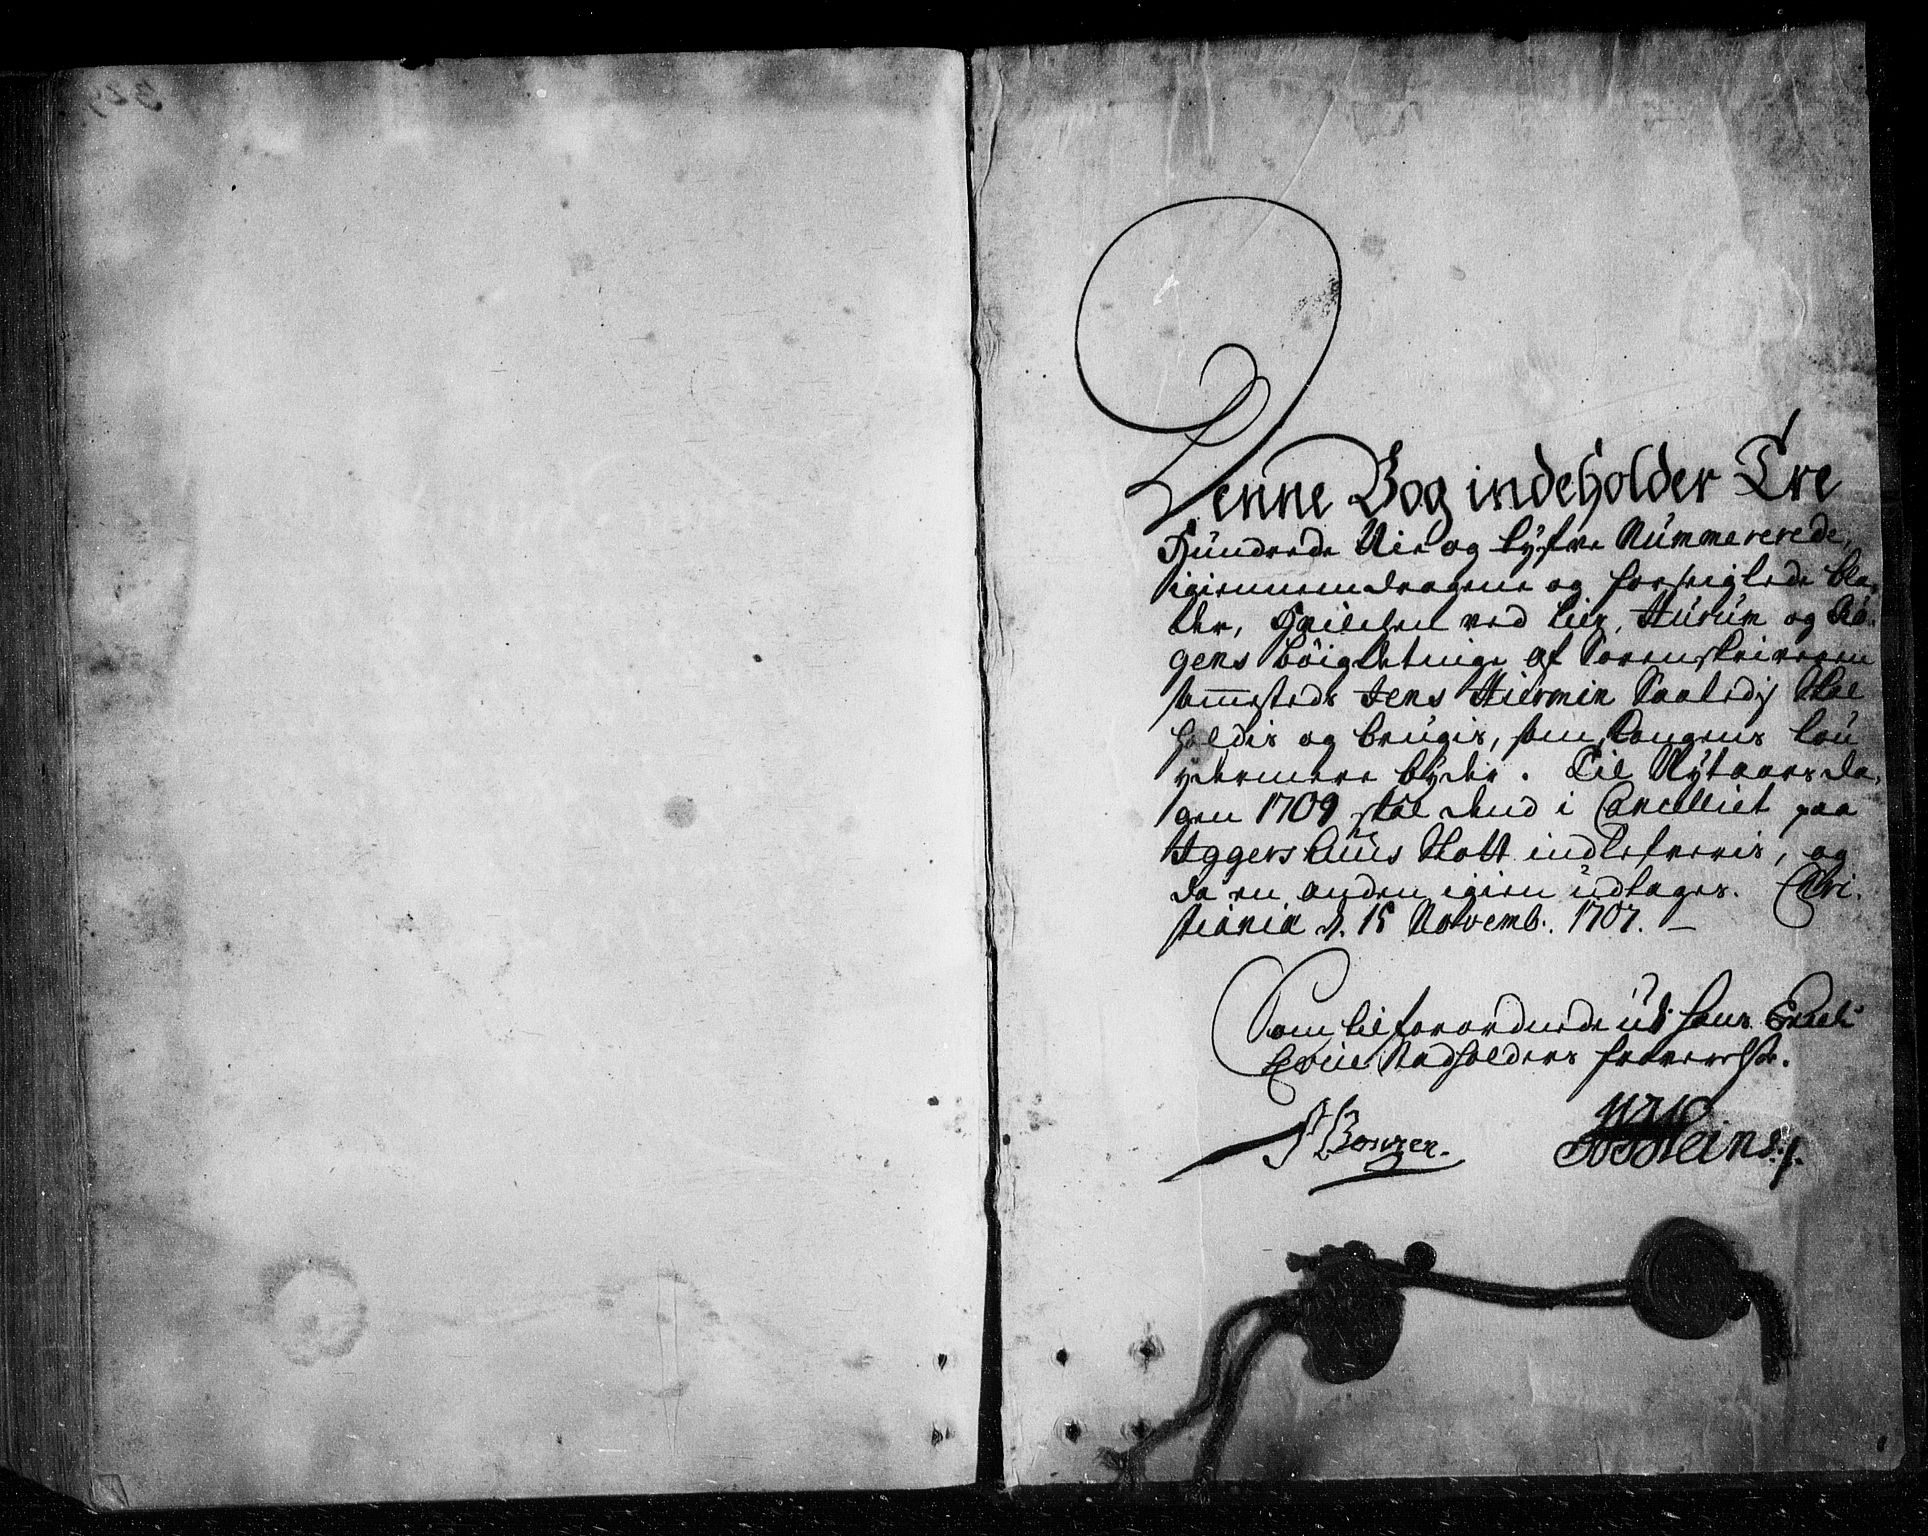 Denne Bog indeholder Tre
Hundrede Nie og tyfve Nummererede,
igiennemdragene og forseiglede bla,
der, Hvilchen ved Lier, Hurum og Rø,
gens bøigdetinge af Sorenskriveren
sammesteds Jens Hiermin Saaledis skal
holdis og brugis, som Kongens Lou
ydermere byder. Til Nytaars da,
gen 1709 skal dend i Cancelliet paa
Aggershuus Slott indlefveris, og
da en anden igien udtages. Chri,
stiania d. 15 Novemb. 1707.
Som tilforordnede udj hans Excell:
Hr Stadholders fraverelse.